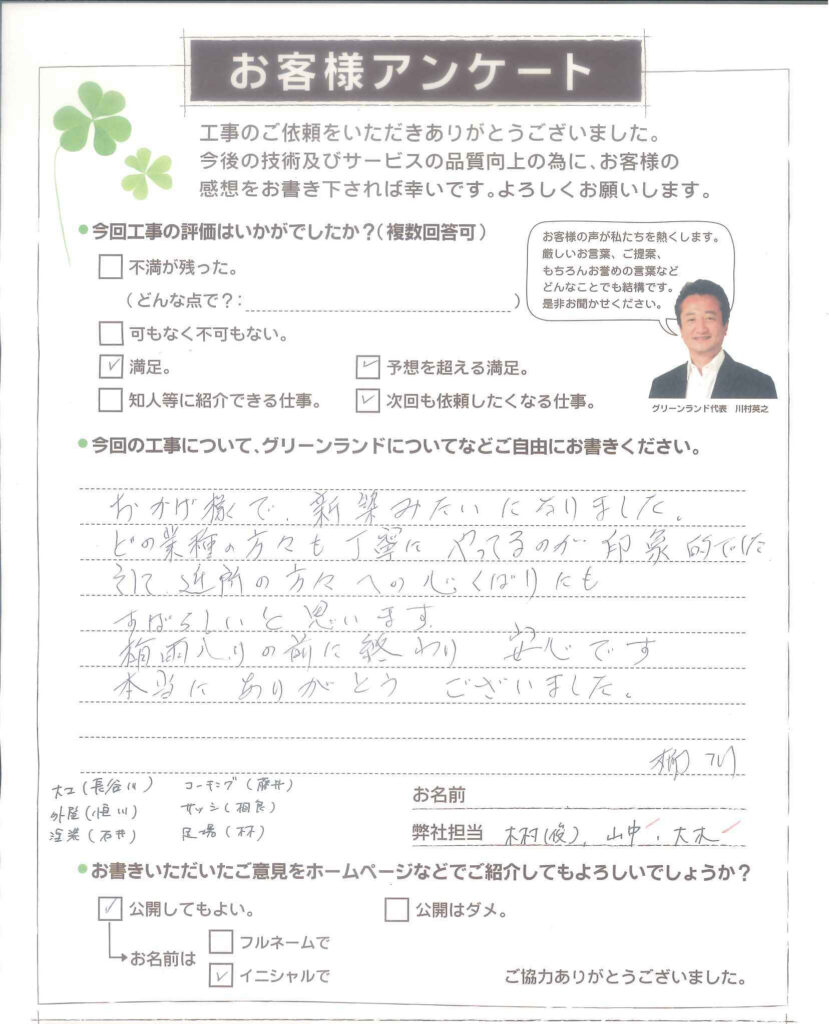 お客様アンケート
工事のご依頼をいただきありがとうございました。
今後の技術及びサービスの品質向上の為に、お客様の
感想をお書き下されば幸いです。よろしくお願いします。
今回工事の評価はいかがでしたか?(複数回答可)
お客様の声が私たちを熱くします。
厳しいお言葉、ご提案、
もちろんお誉めの言葉など
どんなことでも結構です。
是非お聞かせください。
不満が残った。
(どんな点で?: )
可もなく不可もない。
満足。 予想を超える満足。
知人等に紹介できる仕事。 次回も依頼したくなる仕事。
グリーンランド代表 川村英之
今回の工事について、グリーンランドについてなどご自由にお書きください。
おかげ様で、新築みたいになりました。
どの業種の方々も丁寧にやってるのが印象的でした
そして近所の方々への心くばりにも
すばらしいと思います
梅雨入りの前に終わり 安心です
本当にありがとうございました。
柳川
大工(長谷川) コーキング(藤井)
外壁(恒川) サッシ(相良)
塗装(石井) 足場(林)
お名前
弊社担当 木村(俊)、山中、大木
お書きいただいたご意見をホームページなどでご紹介してもよろしいでしょうか?
公開してもよい。 公開はダメ。
お名前は フルネームで
イニシャルで
ご協力ありがとうございました。